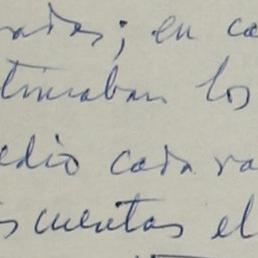 radas; en ca
timaban los
edio cada va
s cuentas el